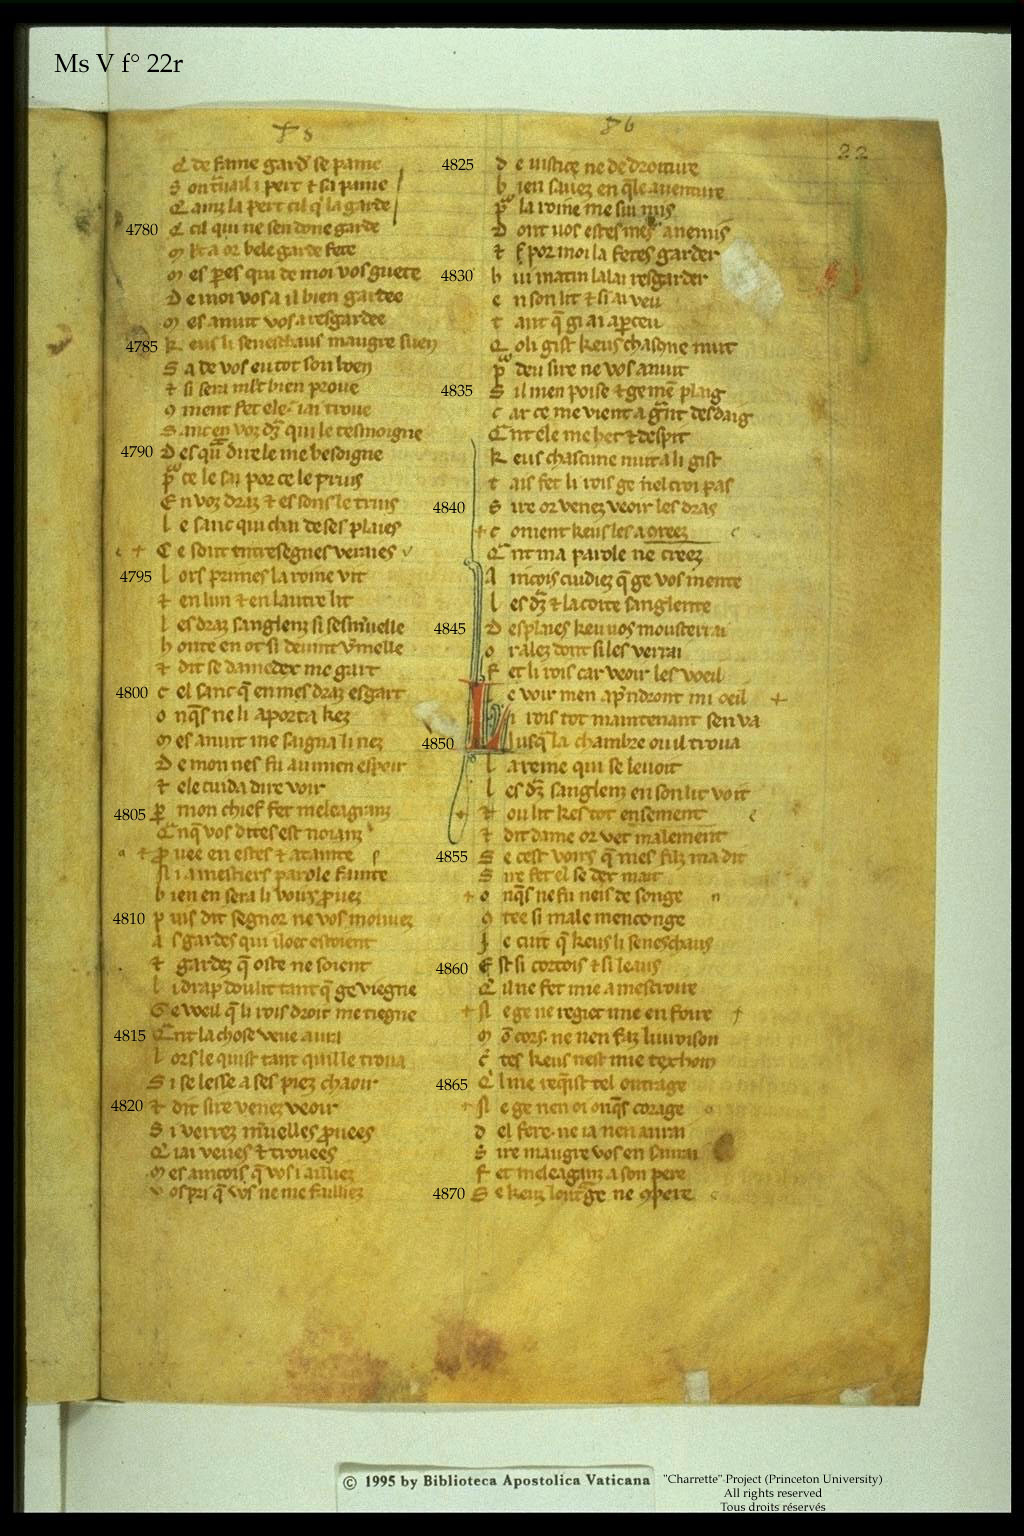 Ms V f° 22r
22
Q de fame gard se paine
S on trauail i pert & sa paine
Q ainz la pert cil q la garde
4780 Q cil qui ne sen done garde
m lt a or bele garde fete
m es peres qui de moi vos guete
D e moi vos a il bien gardee
m es anuit vos a resgardee
4785 K eus li seneschaus maugre suen
S a de vos eu tot son boen
& si sera mlt bien proue
9 ment fet ele iai troue
S anc en voz dz qui le tesmoigne
4790 D es qn dire le me besoigne
p ce le sai por ce le pruis
E n voz draz & es sons le truis
L e sanc qui chai de ses plaies
C e sont entresegnes veraies
4795 l ors primes la roine vit
& en lun & en lautre lit
l es draz sanglenz si sesmuelle
h onte en ot si deuint vmelle
& dit se damedex me gart
4800 c el sanc q en mes draz esgart
o nqs ne li aporta kez
m es anuit me saigna li nez
D e mon nes fu au mien espoir
& ele cuida dire voir
4805 p mon chief fet meleaganz
Qnq vos dites est noianz
& p uee en estes & atainte
N i a mestiers parole fainte
b ien en sera li voirs prouez
4810 p uis dit segnor ne vos mouuez
a s gardes qui iloec estoient
& gardez q oste ne soient
l i drap dou lit tant q ge viegne
G e voeil q li rois droit me tiegne
4815 Qnt la chose veue aura
l ors le quist tant quil le troua
S i se lesse a ses piez chaoir
4820 & dit sire venez veoir
S i verrez muelles prouees
Q iai veues & trouees
m es aincois q vos i ailliez
v os pri q vos ne me failliez
4825 D e iustice ne de droiture
b ien sauez en qle auenture
p la roine me sui mis
D ont vos estes mes anemis
& s por moi la fetes garder
4830 h ui matin lalai resgarder
e n son lit & si ai veu
t ant q gi ai apceu
Q o li gist keus chascune nuit
p deu sire ne vos anuit
4835 S il men poise & ge me plaig
c ar ce me vient a grnt desdaig
Qnt ele me het & despit
K eus chascune nuit a li gist
t ais fet li rois ge nel croi pas
4840 S ire or venez veoir les dras
c oment keus les a areez
Qnt ma parole ne creez
A incois cuidiez q ge vos mente
l es dz & la coute sanglente
4845 D es plaies keu vos mousterrai
o r alez dont si les verrai
F et li rois car veoir les voeil
l e voir men apndront mi oeil
L i rois tot maintenant sen va
4850 Iusq la chambre ou il troua
l a reine qui se leuoit
l es dz sanglenz en son lit voit
& ou lit kes tot ensement
& dit dame or vet malement
4855 S e cest voirs q mes filz ma dit
S ire fet el se dex mait
o nqs ne fu neis de songe
9 tee si male menconge
J e cuit q keus li seneschaus
4860 E st si cortois & si leaus
Q il ne fet mie a mescroire
N e ge ne regiet mie en foire
m o cors ne nen faz liuroison
c tes keus nest mie tex hom
4865 Q l me reqist tel outrage
N e ge nen oi onqs corage
d el fere ne ia nen aurai
S ire maugre vos en saurai
F et meleaganz a son pere
4870 S e keuz loutrage ne 9pere
© 1995 by Biblioteca Apostolica Vaticana
"Charrette" Project (Princeton University)
All rights reserved
Tous droits réservés